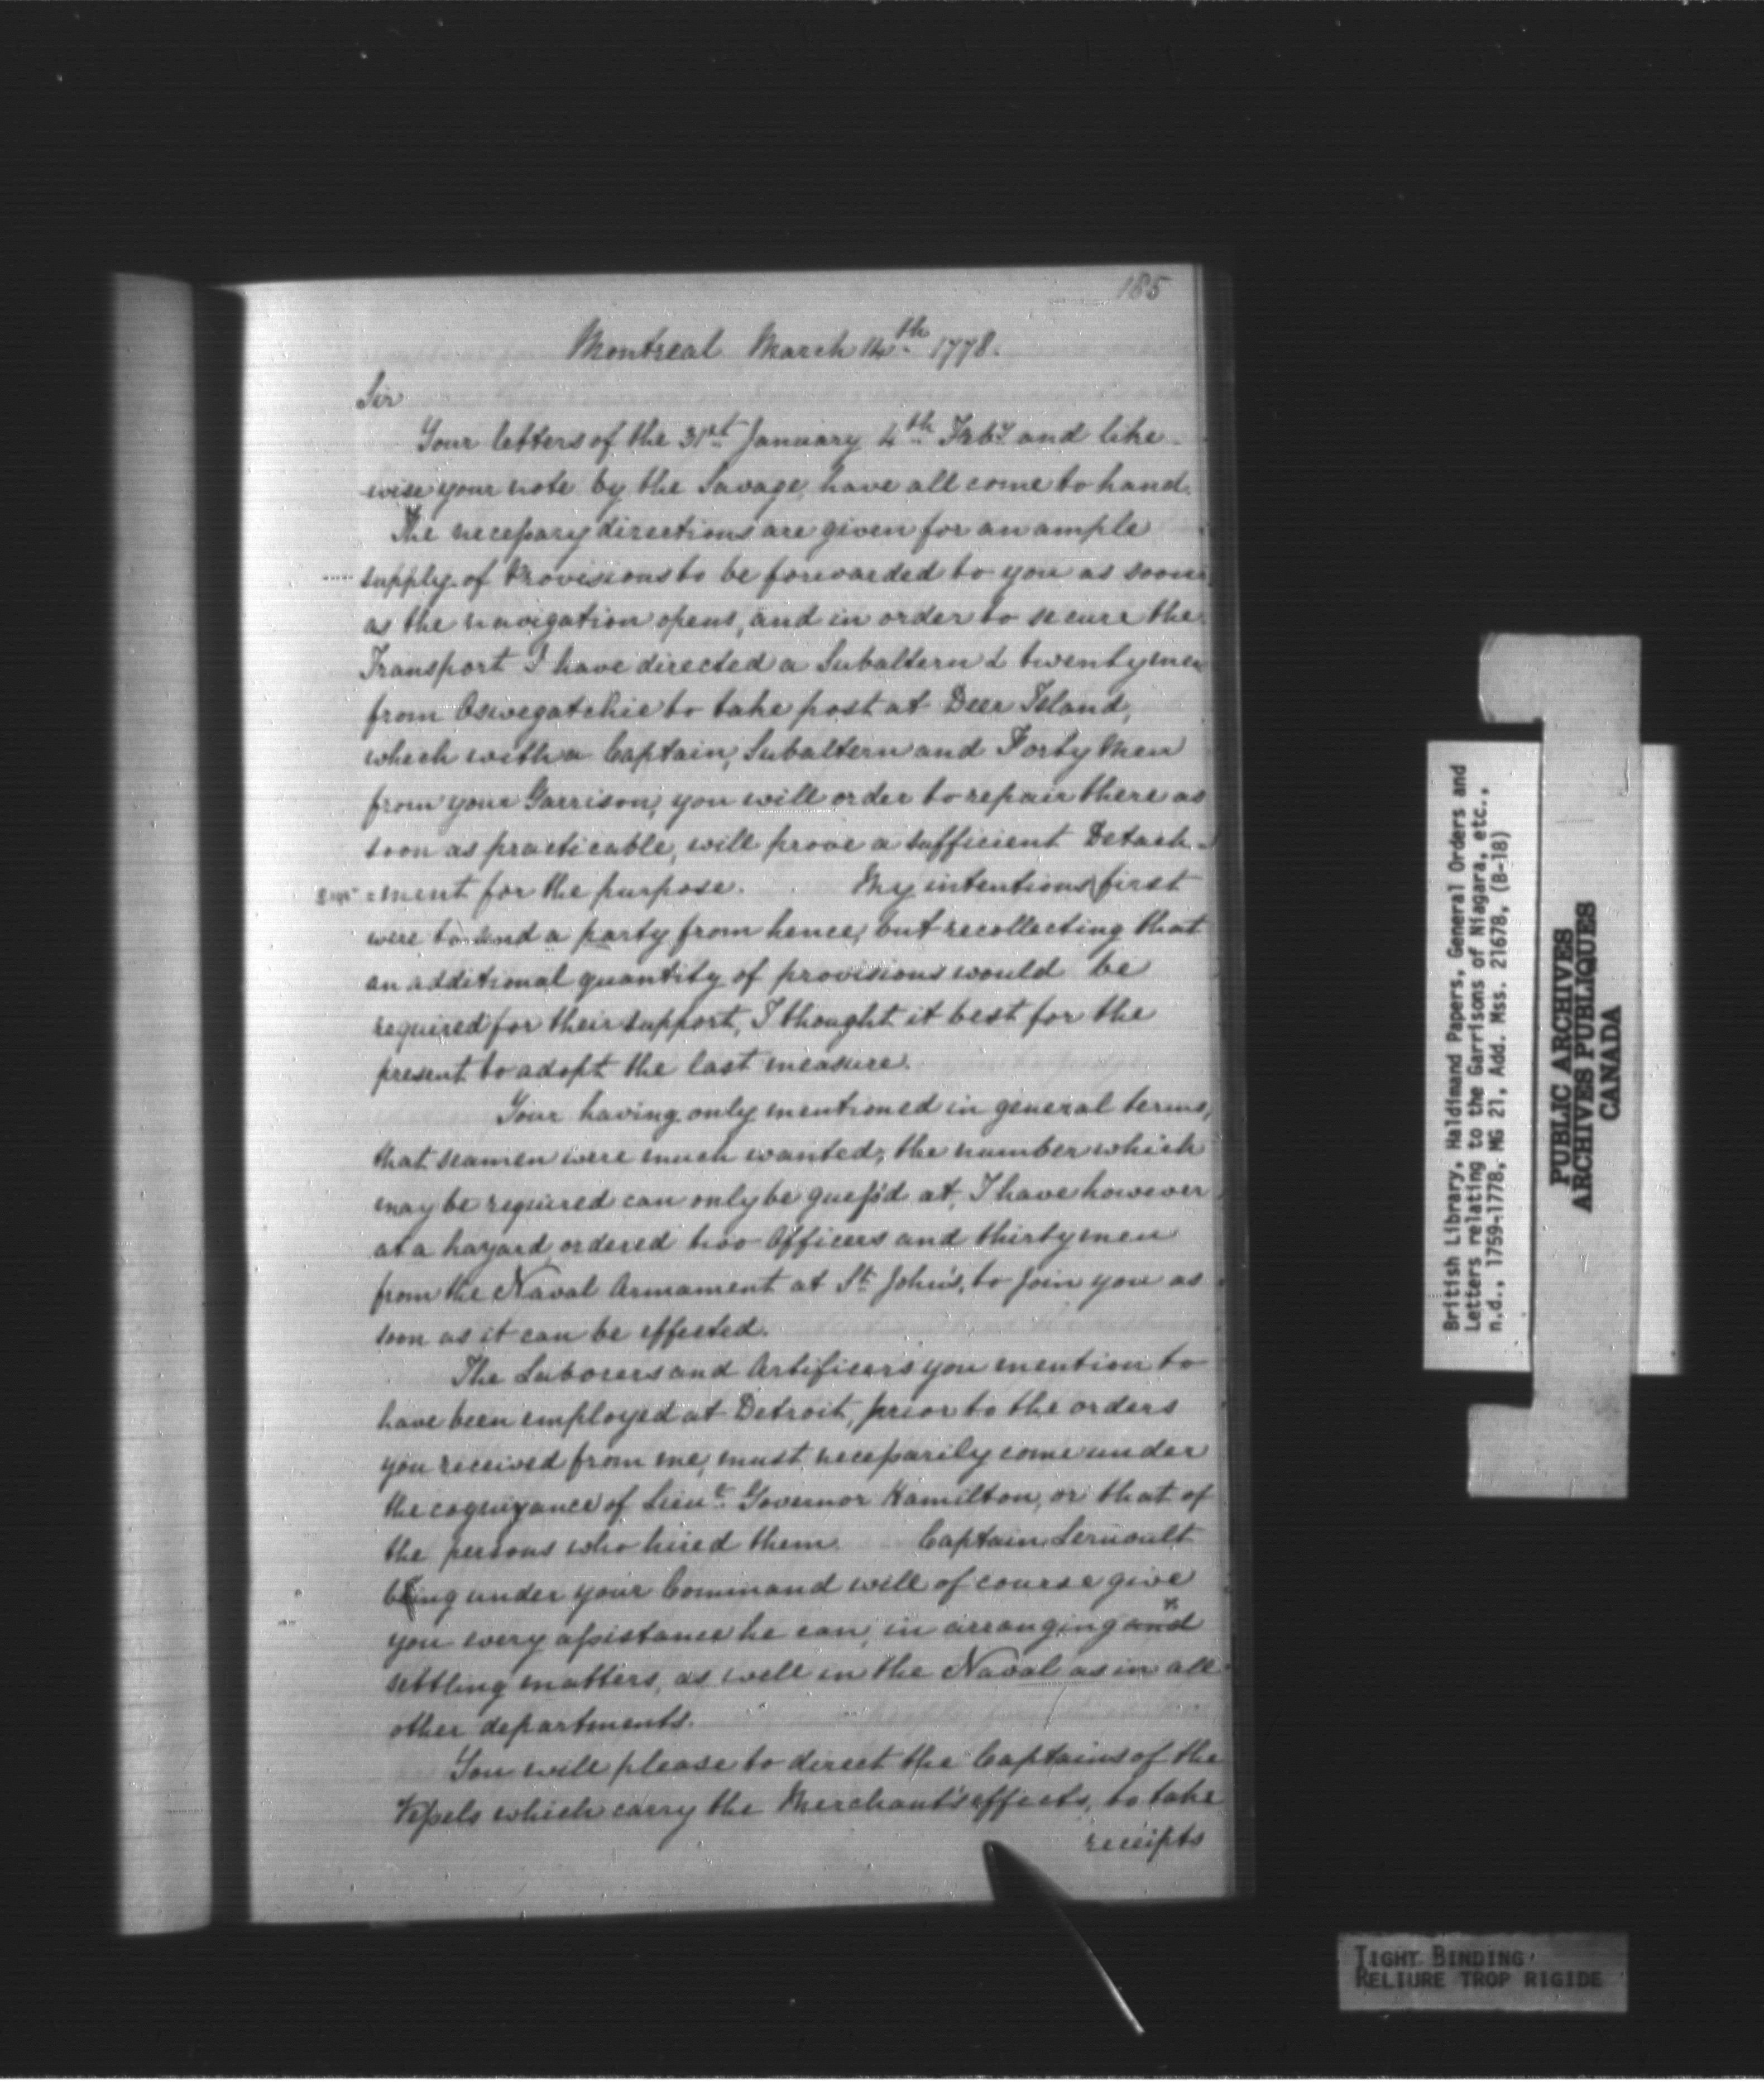 185
Montreal March 14th 1778.
Sir
Your letters of the 31st January 4th Feby and like-
-wise your note by the Savage, have all come to hand.
The necessary directions are given for an ample
supply of Provisions to be forwarded to you as soon
as the navigation opens, and in order to secure the
Transport I have directed a Subaltern & twenty men
from Oswegatchie to take post at Deer Island,
which with a Captain, Subaltern and Forty Men
from your Garrison, you will order to repair there as
soon as practicable, will prove a sufficient Detach-
=ment for the purpose. My intentions first
were to send a party from hence, but recollecting that
an additional quantity of provisions would be
required for their support, I thought it best for the
present to adopt the last measure.
Your having only mentioned in general terms,
that seamen were much wanted, the number which
may be required can only be guess'd at, I have however
at a hazard ordered two Officers and thirty men
from the Naval Armament at St. John's, to join you as
soon as it can be effected.
The Laborers and Artificers you mention to
have been employed at Detroit, prior to the orders
you received from me, must necessarily come under
the cognizance of Lieut. Governor Hamilton, or that of
the persons who hired them. Captain Lernoult
being under your Command will of course give
you every assistance he can, in arranging and
settling matters, as well in the Naval as in all
other departments.
You will please to direct the Captains of the
Vessels which carry the Merchant's effects, to take
receipts
British Library, Haldimand Papers, General Orders and
Letters relating to the Garrisons of Niagara, etc.,
n.d., 1759-1778, MG 21, Add. Mss. 21678, (B-18)
PUBLIC ARCHIVES
ARCHIVES PUBLIQUES
CANADA
TIGHT BINDING
RELIURE TROP RIGIDE